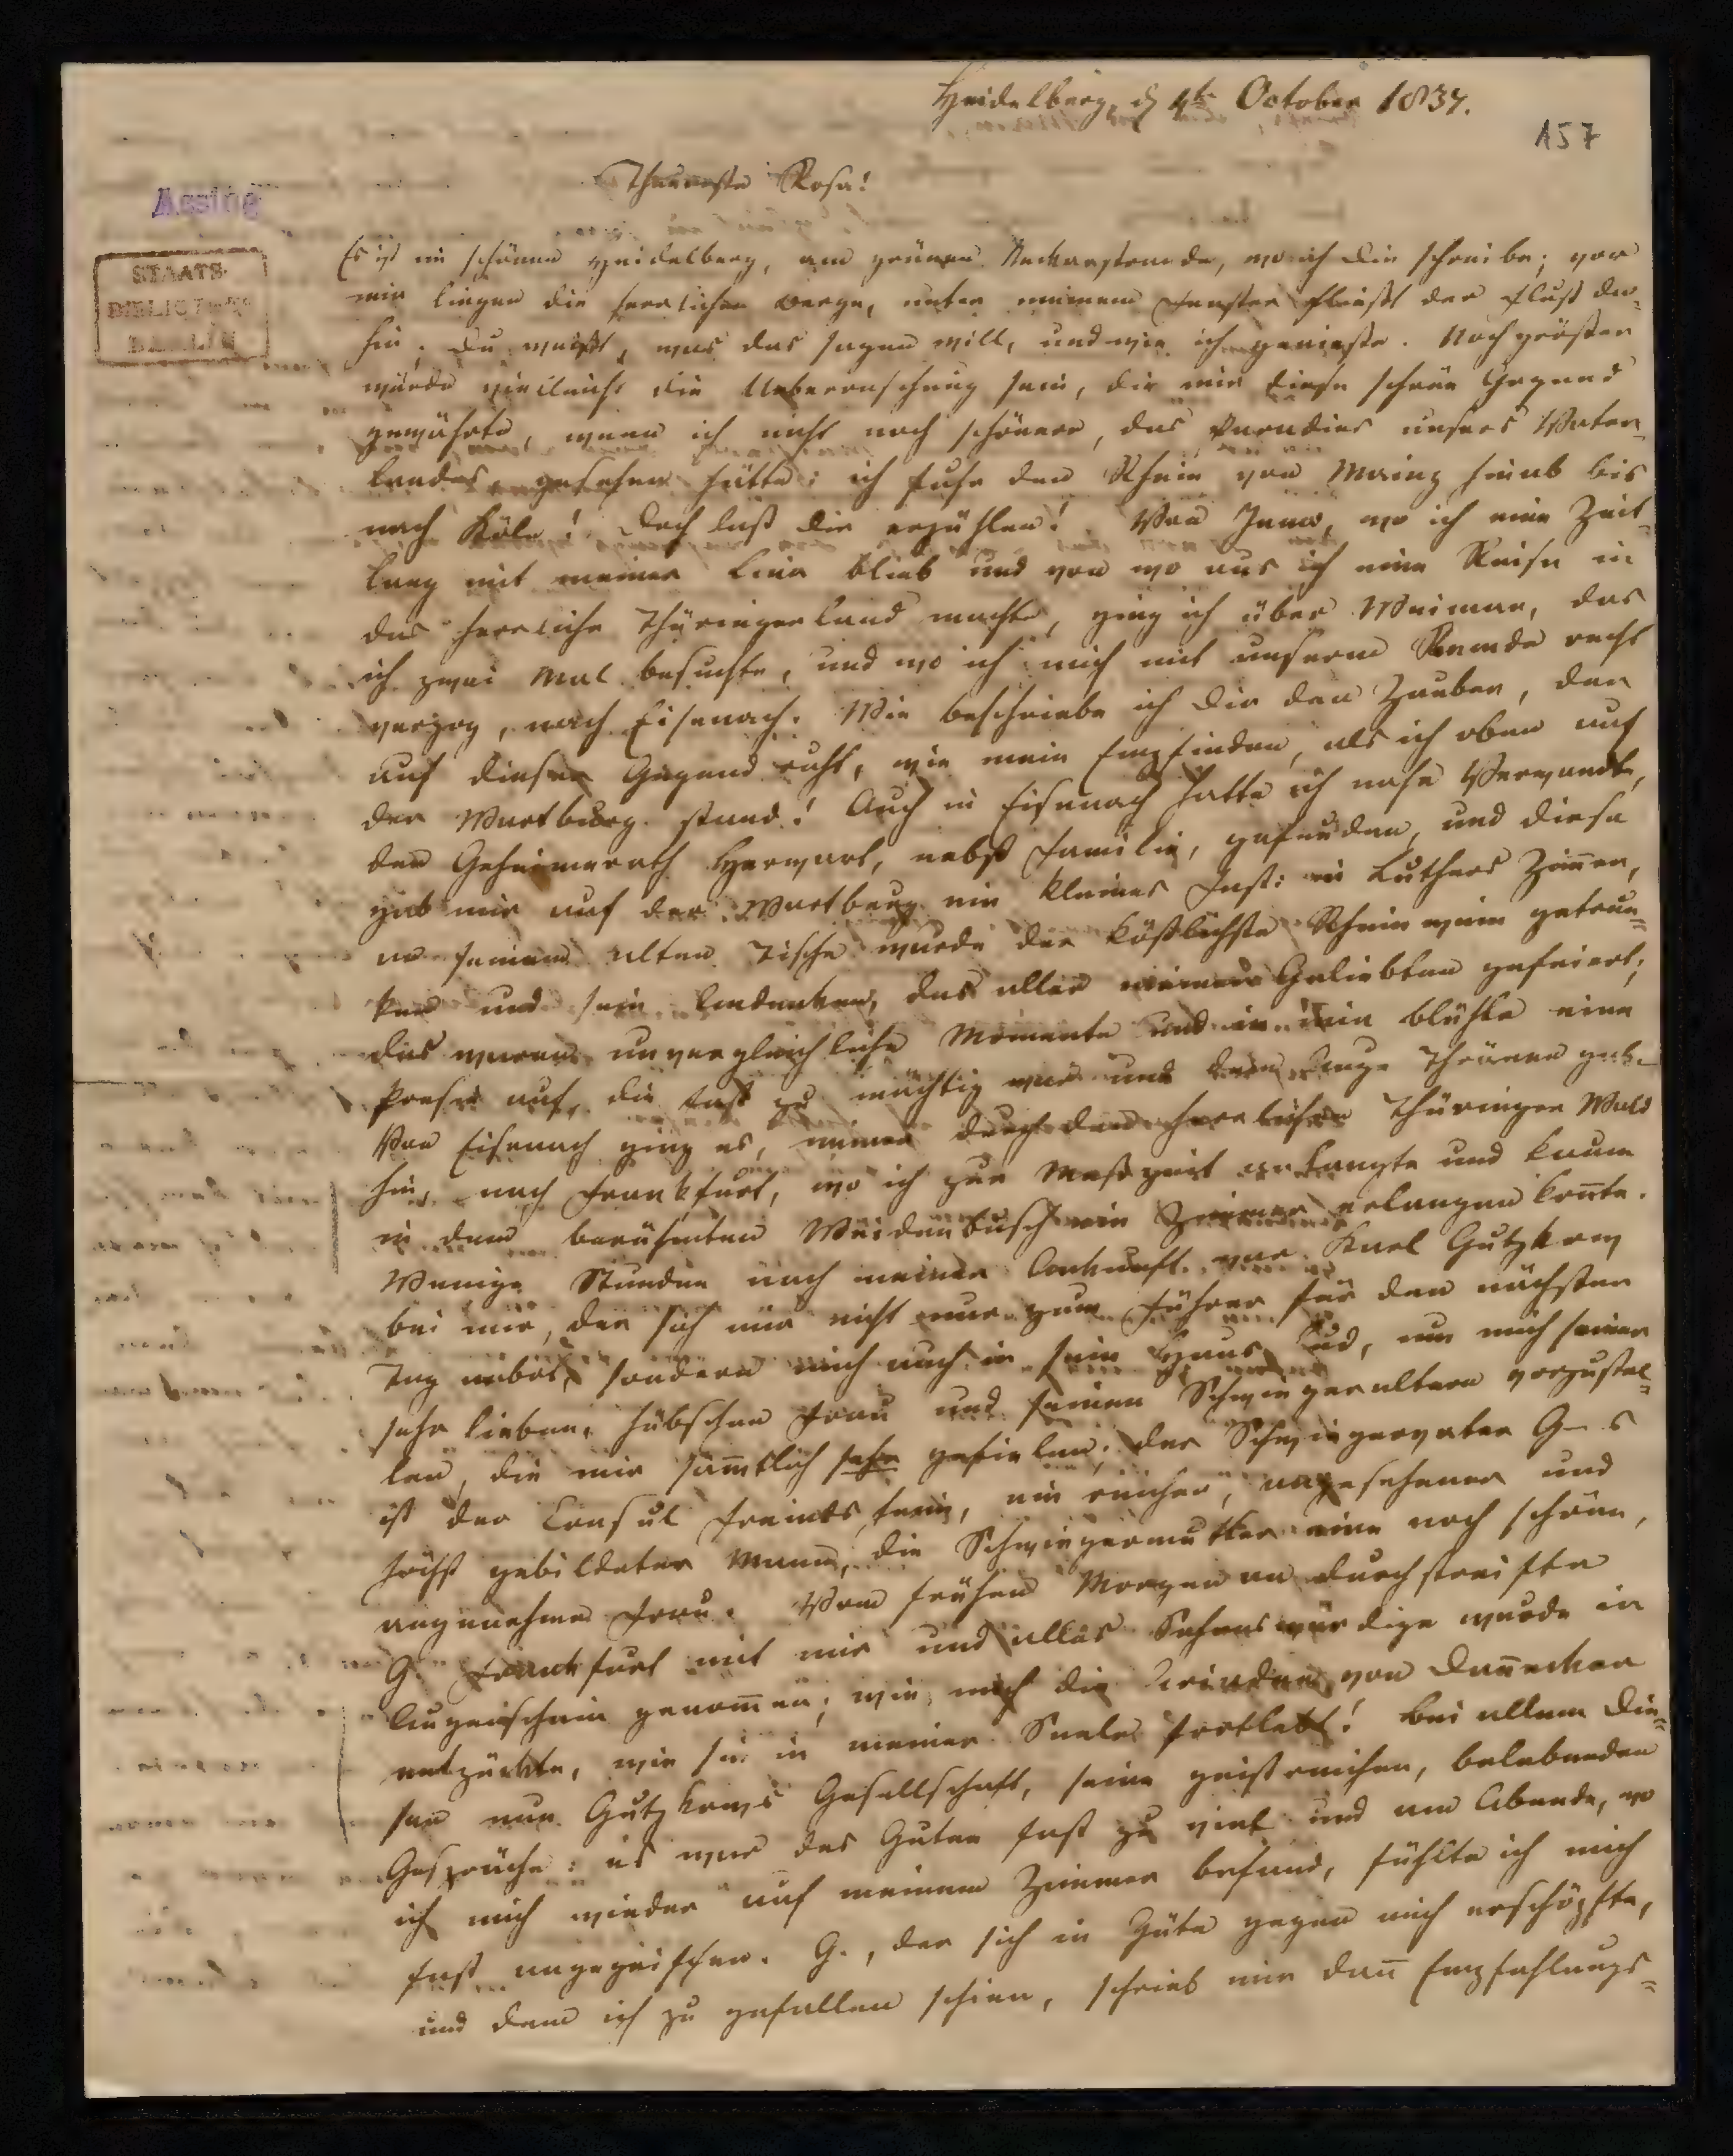 Heidelberg, d 4t October 1837.
157
Theuerste Rosa!
Assing
STAATS-
BIBLIOTHEK
BERLIN
Es ist im schönen Heidelberg, am grünen Neckarstrande, wo ich Dir schreibe; vor
mir liegen die herrlichen Berge, unter meinem Fenster fließt der Fluß da-
hin; Du weißt, was das sagen will, und wie ich genieße. Noch größer
würde vielleicht die Ueberraschung sein, die mir diese schöne Gegend
gewährte, wenn ich nicht noch schönere, das Paradies unsers Vater-
landes, gesehen hätte: ich fuhr den Rhein von Mainz hinab bis
nach Köln! Doch laß Dir erzählen! Von Jena, wo ich eine Zeit-
lang mit meiner Lina blieb und von wo aus ich eine Reise in
das herrliche Thüringerland machte, ging ich über Weimar, das
ich zwei Mal besuchte, und wo ich mich mit unserm Kunde recht
verzog, nach Eisenach. Wie beschriebe ich Dir den Zauber, der
auf dieser Gegend ruht, wie mein Empfinden, als ich oben auf
der Wartburg stand! Auch in Eisenach hatte ich nahe Verwandte,
den Geheimerath Herwart, nebst Familie, gefunden, und diese
gab mir auf der Wartburg ein kleines Fest: in Luthers Zimmer,
an seinem alten Tische wurde der köstlichste Rheinwein getrun-
ken und sein Andenken, das aller meiner Geliebten gefeiert;
das waren unvergleichliche Momente und in mir blühte eine
Poesie auf, die fast zu mächtig war und dem Auge Thränen gab.
Von Eisenach ging es, immer durch den herrlichen Thüringer Wald
hin, nach Frankfurt, wo ich zur Meßzeit anlangte und kaum
in dem berühmten Weidenbusch ein Zimmer erlangen konnte.
Wenige Stunden nach meiner Ankunft war Karl Gutzkow
bei mir, der sich mir nicht nur zum Führer für den nächsten
Tag anbot, sondern mich auch in sein Haus lud, um mich seiner
sehr lieben, hübschen Frau und seinen Schwiegereltern vorzustel-
len, die mir sämtlich sehr gefielen; der Schwiegervater G–s
ist der Consul Freinsheim, ein reicher, angesehener und
höchst gebildeter Mann, die Schwiegermutter eine noch schöne,
angenehme Frau. Vom frühen Morgen an durchstreifte
G. Frankfurt mit mir und alles Sehenswürdige wurde in
Augenschein genommen; wie mich die Ariadne von Dannecker
entzückte, wie sie in meiner Seele fortlebt! Bei allem die-
sen nun Gutzkows Gesellschaft, seine geistreichen, belebenden
Gespräche: es war des Guten fast zu viel und am Abende, wo
ich mich wieder auf meinem Zimmer befand, fühlte ich mich
fast angegriffen. G., der sich in Güte gegen mich erschöpfte,
und dem ich zu gefallen schien, schrieb mir dann Empfehlungs-